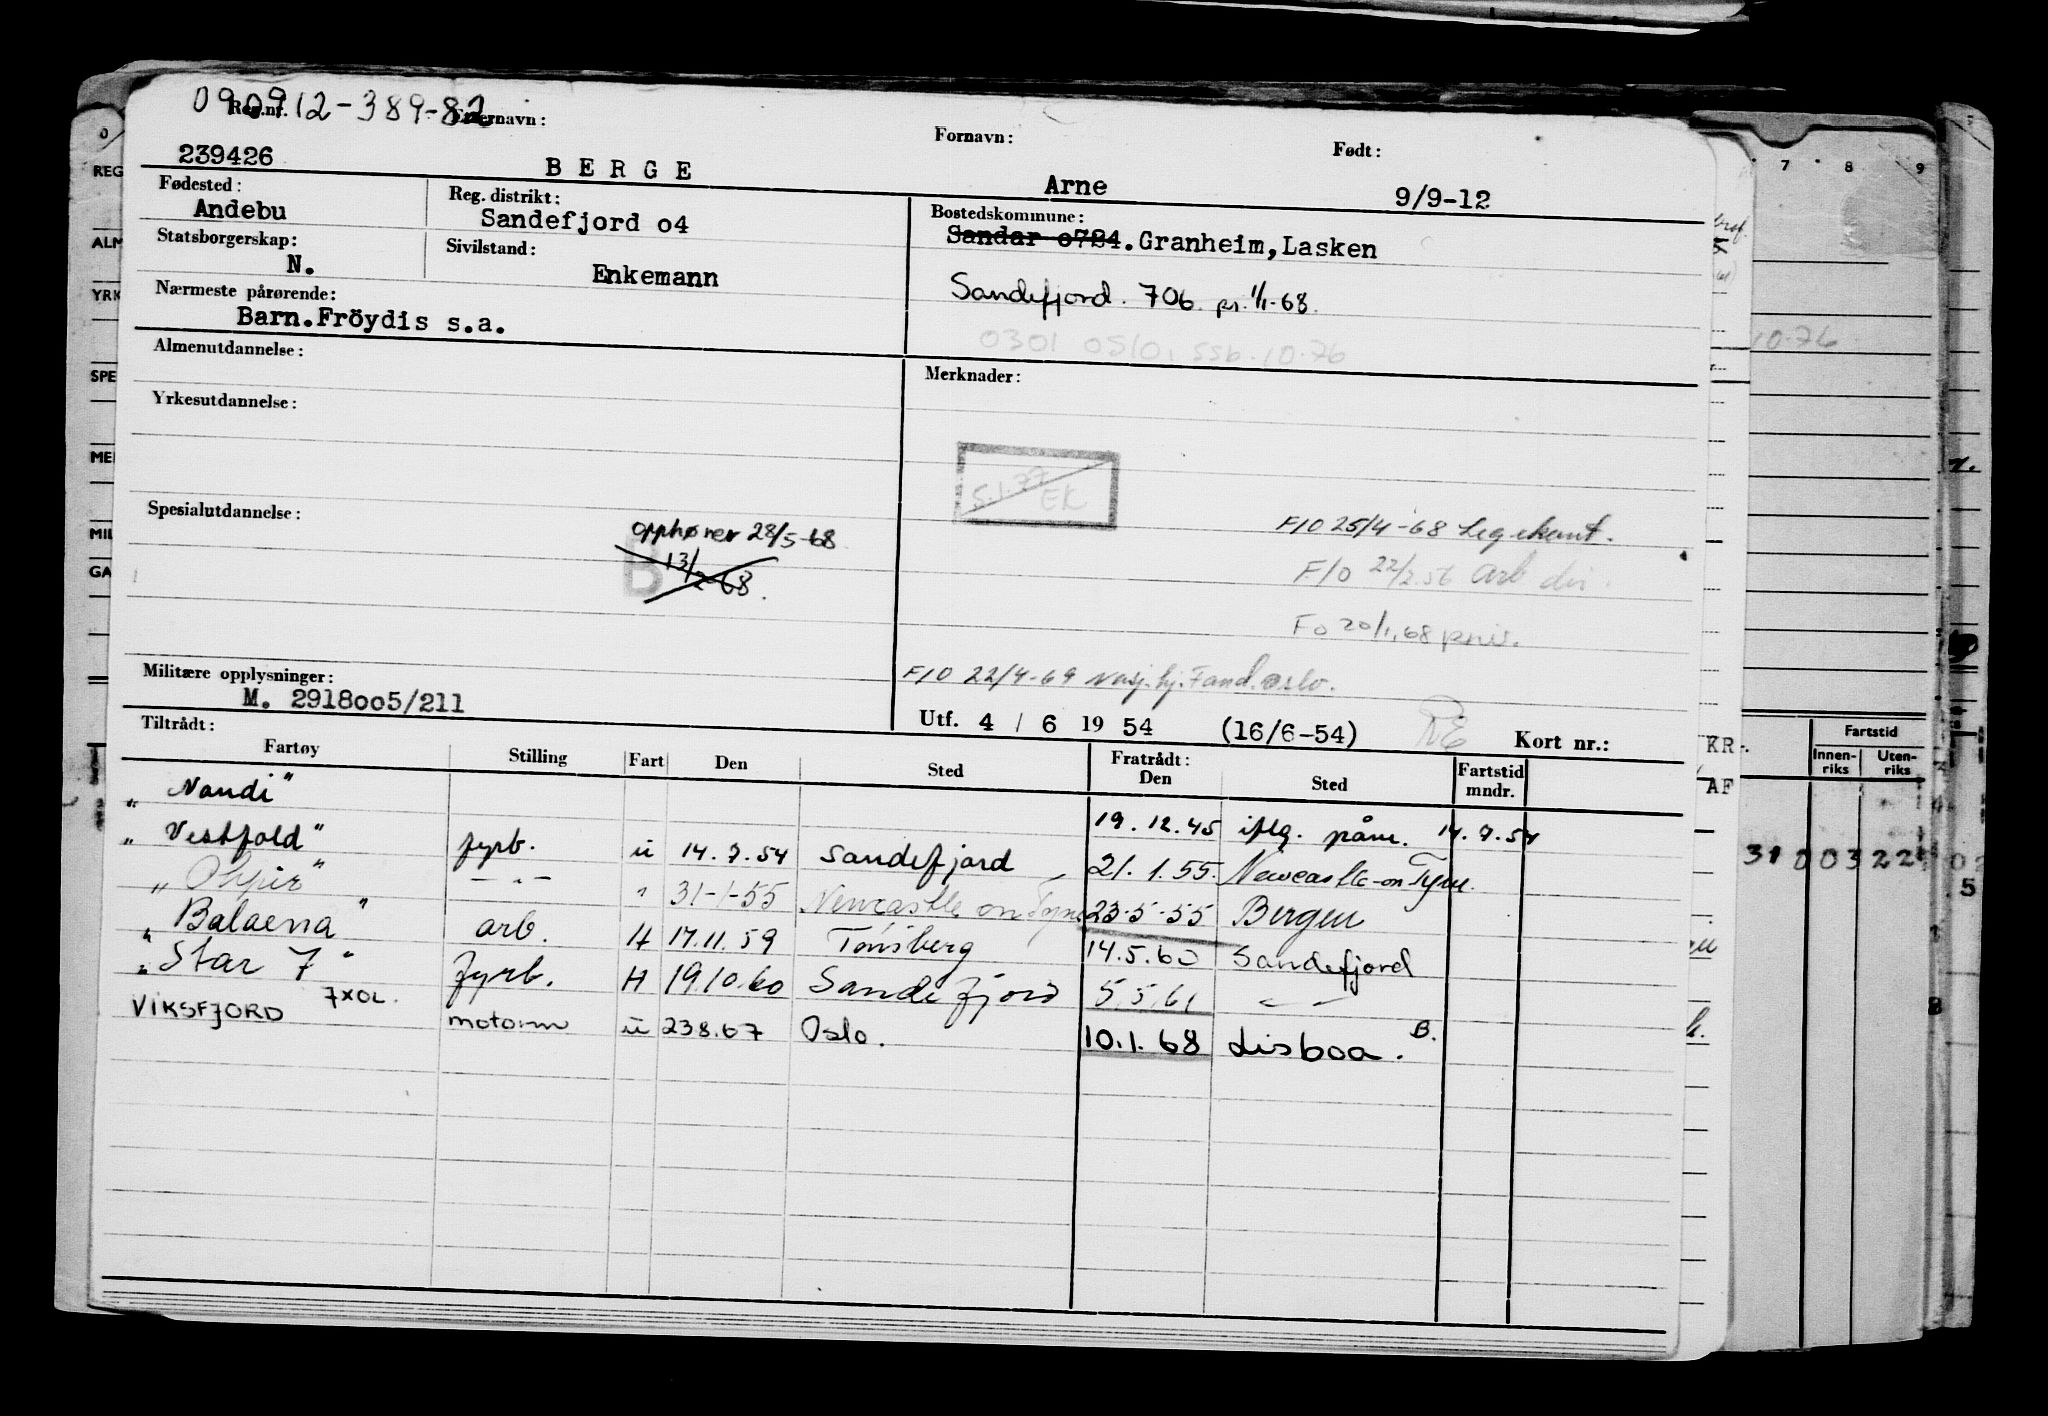 090912-389-82
Reg.nr. Etternavn: Fornavn: Født:
239426 BERGE Arne 9/9-12
Fødested: Reg. distrikt: Bostedskommune:
Andebu Sandefjord o4 Sandar o724. Granheim, Lasken
Statsborgerskap: Sivilstand:
N. Enkemann
Sandefjord. 706 pr. 1/1-68.
Nærmeste pårørende:
Barn. Fröydis s.a.
0301 0510, SSb. 10.76
Almenutdannelse: Merknader:
Yrkesutdannelse:
5.1.77 EK
Spesialutdannelse:
opphører 28/5-68
B 13/2-68.
F/O 25/4-68
F/O 22/2.56 Arb dir.
Fo 20/1.68 priv.
F/O 22/4-69 Oslo.
Militære opplysninger:
M. 2918oo5/211
Utf. 4 / 6 19 54 (16/6-54) Kort nr.:
Tiltrådt: Fratrådt:
Fartøy Stilling Fart Den Sted Den Sted Fartstid mndr.
"Nandi" 19.12.45 iflg. påm. 14.7.54
"Vestfold" fyrb. u 14.7.54 Sandefjord 21.1.55. Newcastle-on Tyne.
"Ophir" -"- " 31-1-55 Newcastle on Tyne 23-5-55 Bergen
"Balaena" arb. H 17.11.59 Tønsberg 14.5.60 Sandefjord
"Star 7" fyrb. H 19.10.60 Sandefjord 5.5.61 -"-
VIKSFJORD 7XOL. motorm u 23.8.67 Oslo. 10.1.68 Lisboa. B.
REG
ALM
YRK
SPE
MER
MIL
GA
7 8 9
10.76
Fartstid
Innen-riks Uten-riks
KR
AF
31 003 22